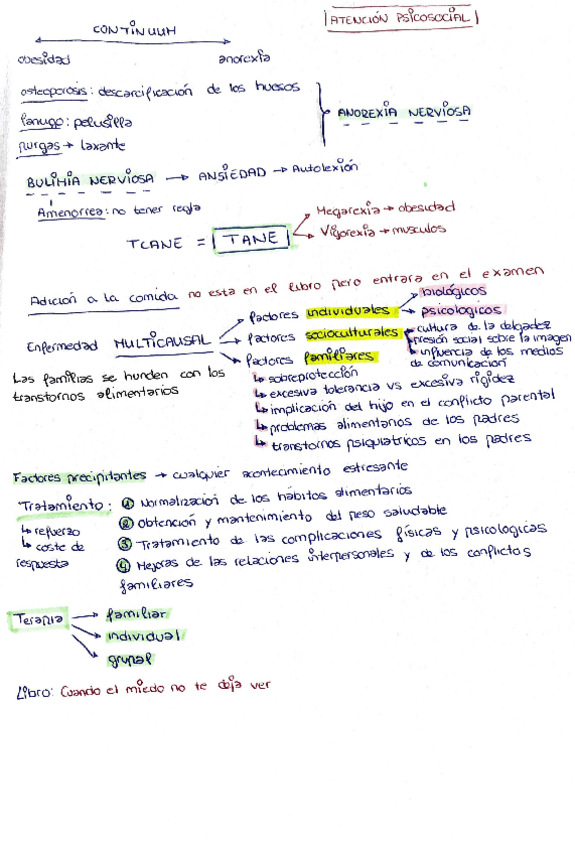 ATENCIÓN PSICOSOCIAL
CONTINUUM
obesidad anorexia
osteoporosis: descarcificación de los huesos
lanugo: pelusilla
purgas → laxante
ANOREXIA NERVIOSA
BULIMIA NERVIOSA → ANSIEDAD → Autolexión
Amenorrea: no tener regla
TCANE = TANE
Megarexia → obesidad
Vigorexia → musculos
Adición a la comida no esta en el libro pero entrara en el examen
Enfermedad MULTICAUSAL
factores individuales
biológicos
psicologicos
factores socioculturales
cultura de la delgadez
presión social sobre la imagen
influencia de los medios
de comunicación
factores familiares
↳ sobreprotección
↳ excesiva tolerancia vs excesiva rigidez
↳ implicación del hijo en el conflicto parental
↳ problemas alimentarios de los padres
↳ transtornos psiquiatricos en los padres
Las familias se hunden con los
transtornos alimentarios
Factores precipitantes → cualquier acontecimiento estresante
Tratamiento: ① Normalización de los hábitos alimentarios
② Obtención y mantenimiento del peso saludable
③ Tratamiento de las complicaciones físicas y psicologicas
④ Mejoras de las relaciones interpersonales y de los conflictos
familiares
↳ refuerzo
↳ coste de
respuesta
Terapia → familiar
→ individual
→ grupal
Libro: Cuando el miedo no te deja ver